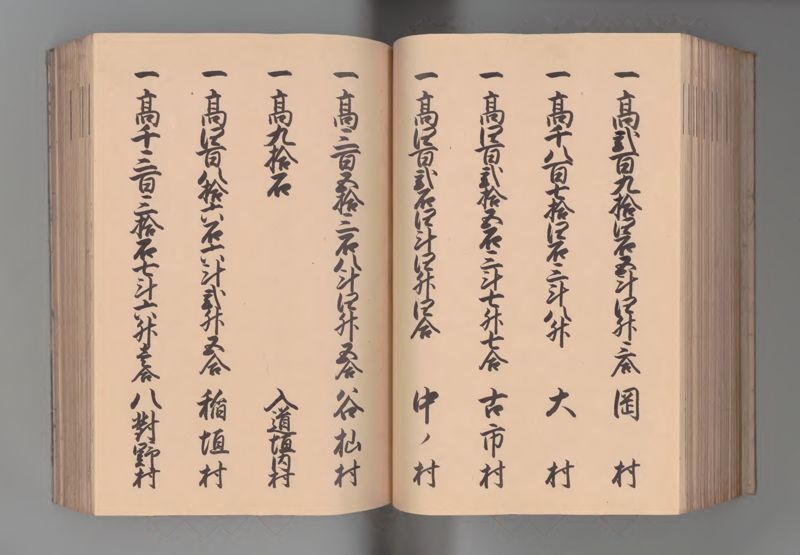 一 高弐百九拾四石五斗四升三合 岡村
一 高千八百七拾四石三斗八升 大村
一 高四百弐拾五石三斗七升七合 古市村
一 高四百弐石四斗四升四合 中ノ村
一 高三百五拾三石八斗四升五合 谷杣村
一 高九拾石 入道垣内村
一 高四百八拾六石六斗弐升五合 稲垣村
一 高千三百三拾石七斗六升壱合 八對野村